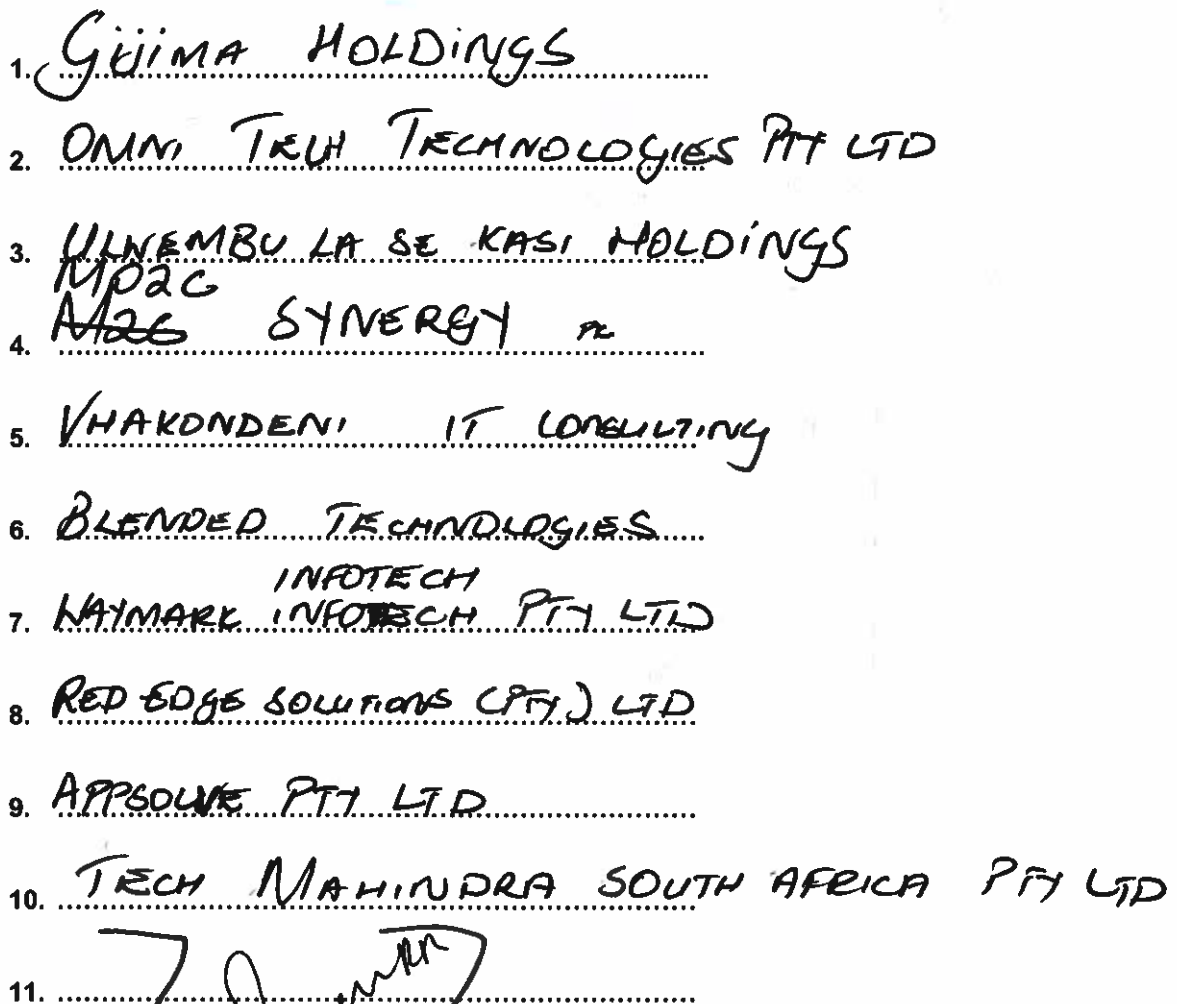 1. Gijima HOLDiNGS
2. OMNI TECH TECHNOLOGIES PTY LTD
3. ULWEMBU LA SE KASI HOLDiNGS
MD2C
4. M2G SYNERGY
5. VHAKONDENI IT CONSULTING
6. BLENDED TECHNOLOGIES
INFOTECH
7. WAYMARK INFOTECH PTY LTD
8. RED EDGE SOLUTIONS (PTY) LTD
9. APPSOLVE PTY LTD
10. TECH MAHINDRA SOUTH AFRICA PTY LTD
11.